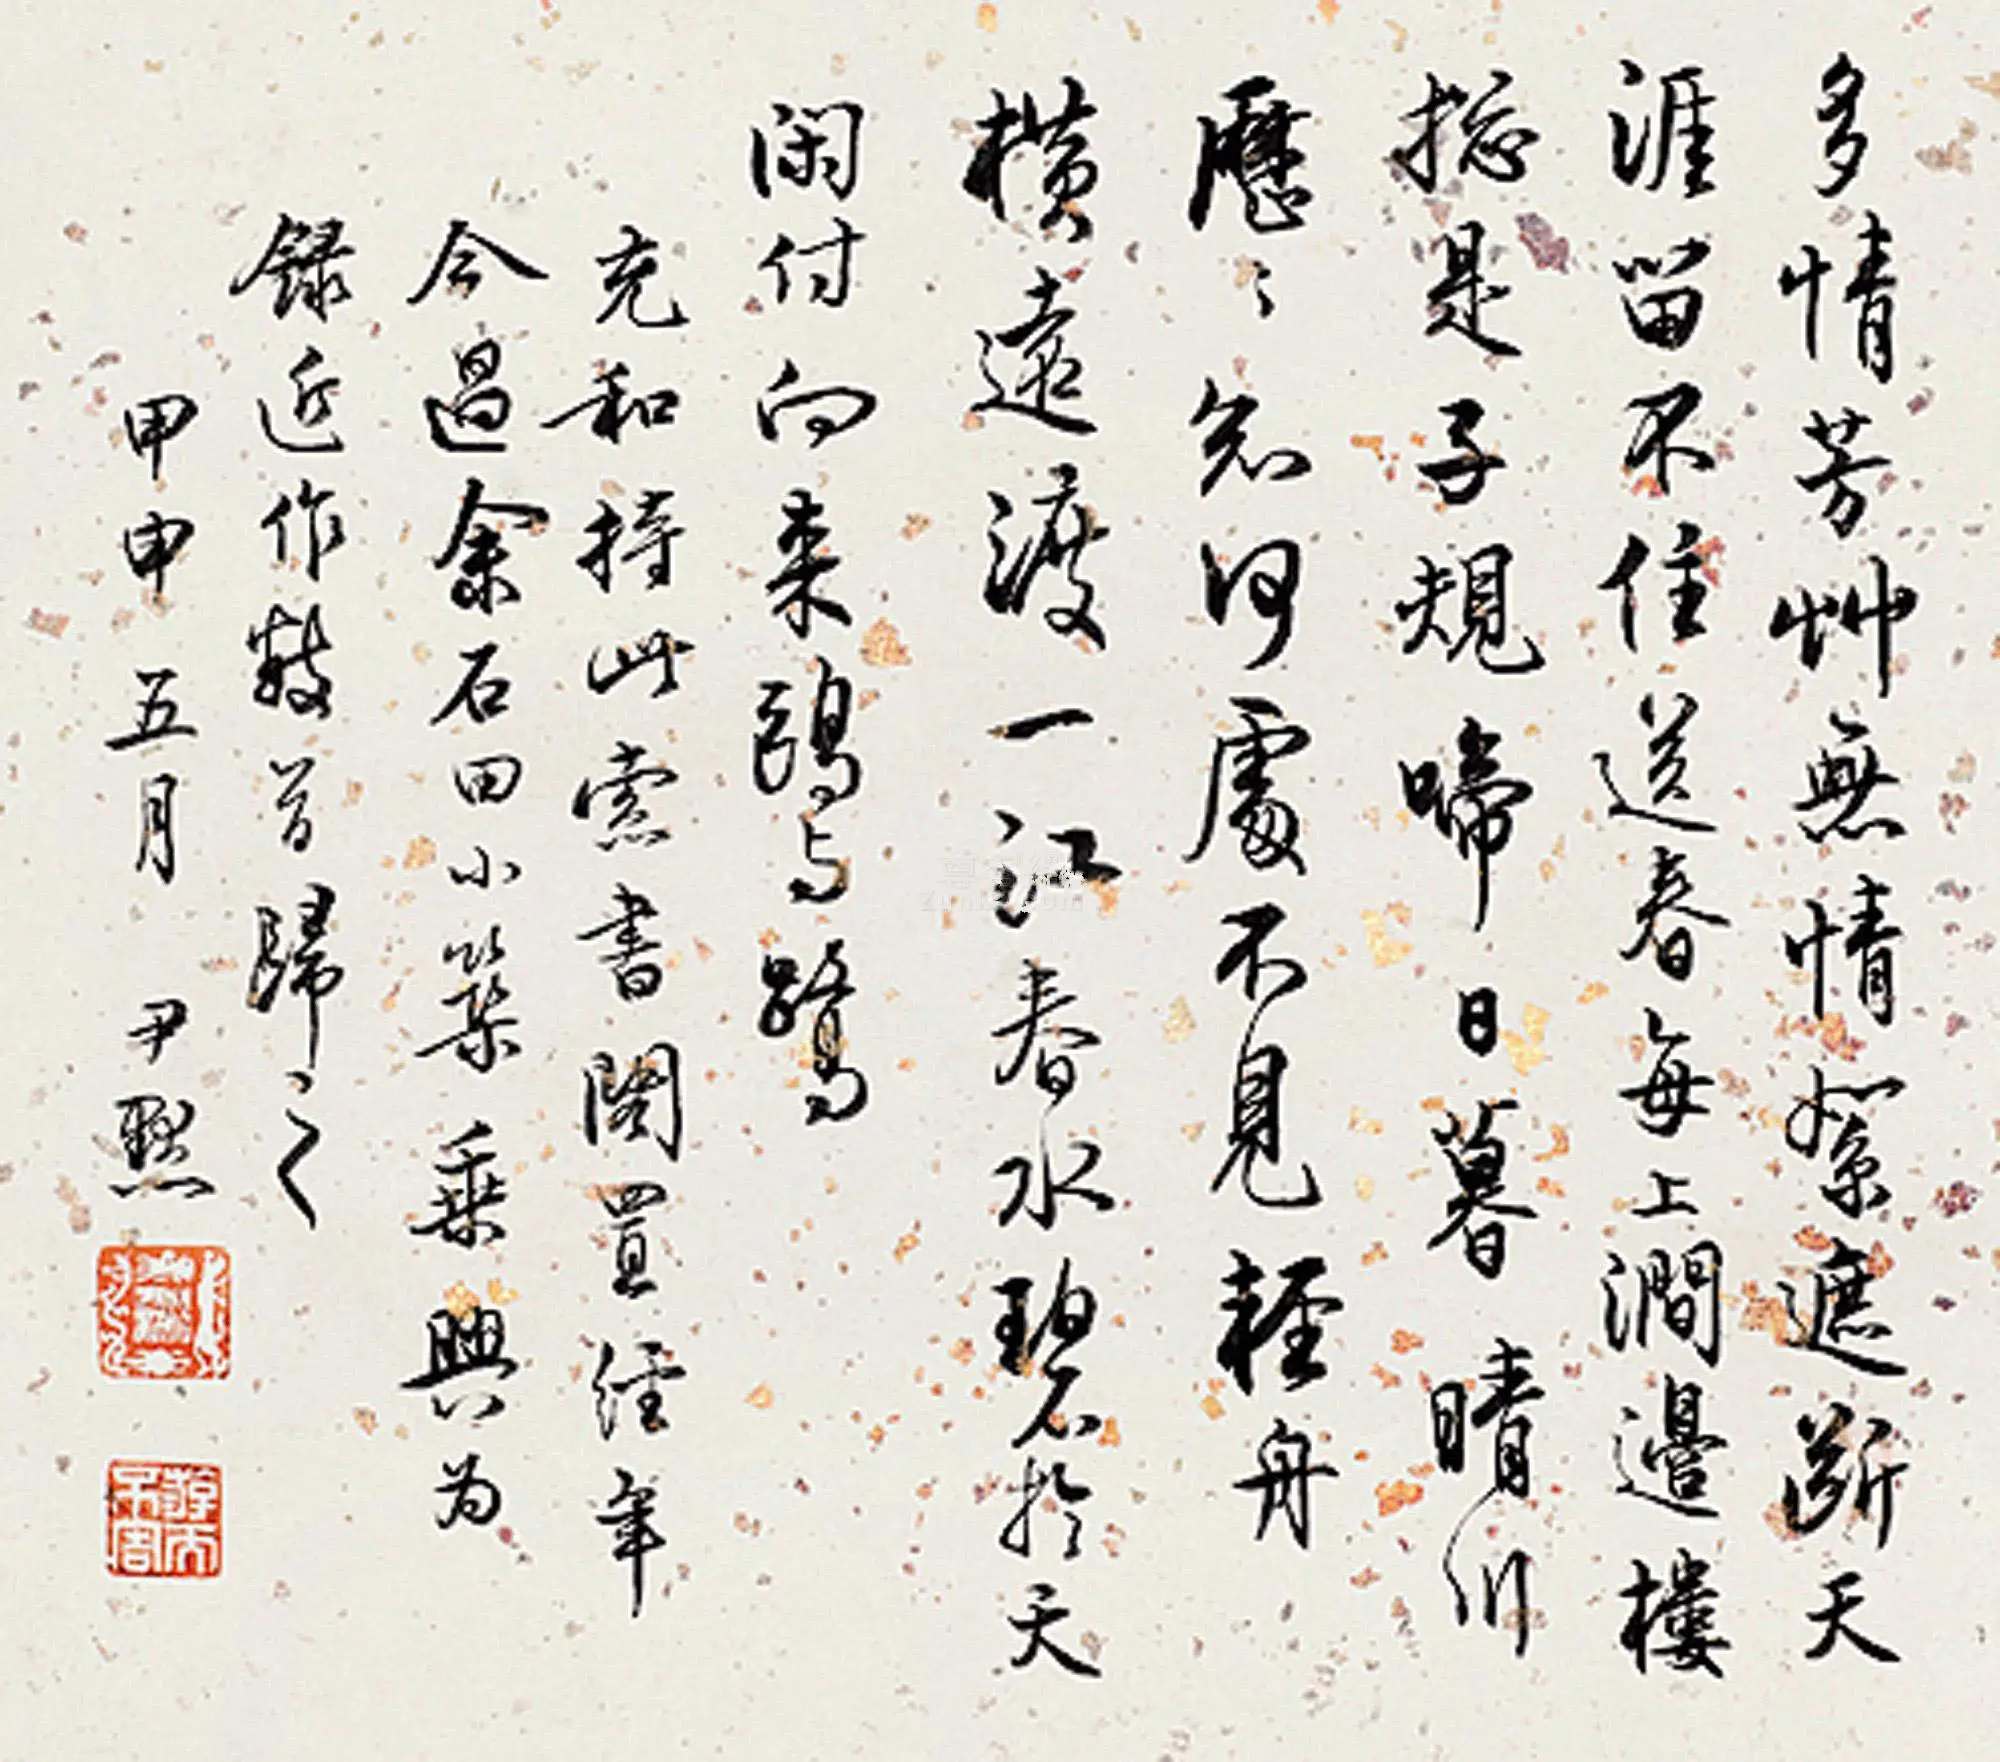 多情芳艸無情絮遮斷天
涯留不住送春每上澗邊樓
揔是子規啼日暮 晴川
歷〻知何處不見輕舟
橫遠渡一江春水碧於天
閑付向來鷗与鷺
充和持此索書閣置經年
今過余石田小築乗興为
録近作數首歸之
甲申五月 尹默